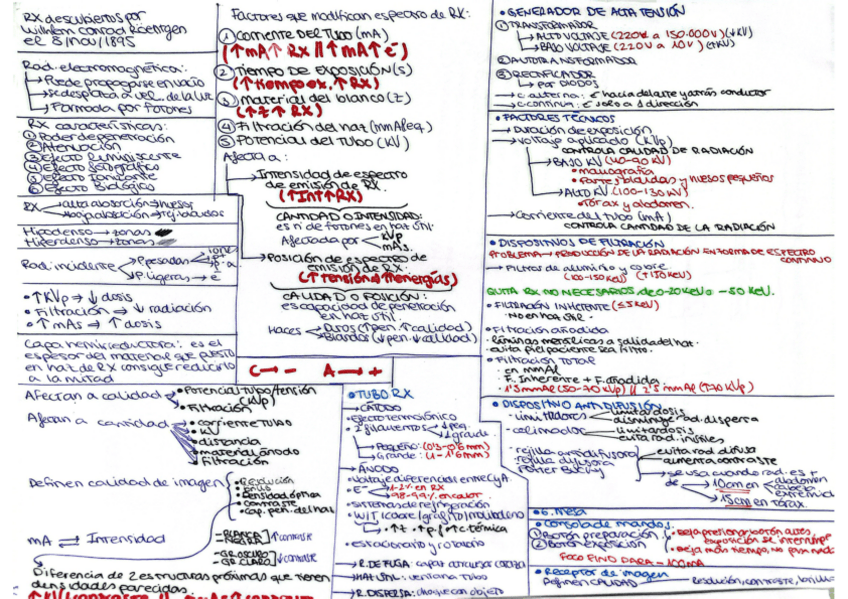 RX descubiertos por
Wilhelm Conrad Röentgen
el 8/nov/1895
Rad. electromagnética:
→ Puede propagarse en vacío
→ se desplaza a vel. de la luz
→ Formada por fotones
RX características:
① Poder de penetración
② Atenuación
③ Efecto luminiscente
④ Efecto fotográfico
⑤ Efecto ionizante
⑥ Efecto Biológico
RX → alta absorción → huesos
→ baja absorción → tej. blandos
Hipodenso → zonas
Hiperdenso → zonas
Rad. incidente → P. pesadas
→ P. ligeras → e⁻
• ↑ KVp → ↓ dosis
• Filtración → ↓ radiación
• ↑ mAs → ↑ dosis
Capa hemirreductora: es el
espesor del material que puesto
en haz de RX consigue reducirlo
a la mitad
Afectan a calidad → • Potencial tubo/tensión
(KVp)
• Filtración
Afectan a cantidad → • corriente TUBO
• KV
• distancia
• material ánodo
• Filtración
Definen calidad de imagen
• Resolución
• Densidad óptica
• contraste
• cap. pen. del haz
mA ⇄ Intensidad
- BLANCA
- NEGRA ↑ contraste
- GR. OSCURO
- GR. CLARO ↓ contraste
Diferencia de 2 estructuras próximas que tienen
densidades parecidas.
Factores que modifican espectro de RX:
① Corriente DEL TUBO (mA)
(↑mA↑ RX // ↑mA↑ e⁻)
② Tiempo DE EXPOSICIÓN (s)
(↑ tiempo ex. ↑ RX)
③ Material del blanco (Z)
(↑ Z ↑ RX)
④ Filtración del haz (mmAleq)
⑤ Potencial del TUBO (KV)
Afecta a:
→ Intensidad de espectro
de emisión de RX.
(↑Int↑RX)
CANTIDAD O INTENSIDAD:
es nº de fotones en haz útil.
Afectada por < KVp
mAs.
→ Posición de espectro de
emisión de RX.
(↑ tensión → ↑ energías)
CALIDAD O POSICIÓN:
es capacidad de penetración
en haz útil.
Haces → Duros (↑pen. ↑calidad)
→ Blandos (↓pen. ↓calidad)
C → - A → +
• TUBO RX
→ CÁTODO
• Efecto termoiónico
• 2 filamentos → 1 peq.
→ 1 grande
→ Pequeño: (0'3-0'6mm)
→ Grande: (1-1'6mm)
→ ÁNODO
• Voltaje diferencial entre C y A.
• E⁻ → 1-2% en RX
→ 98-99% en calor
• sistemas de refrigeración
• W // C (cobre/grafito/molibdeno)
• ↑Z • ↑pf • ↑c. térmica
• estacionario y rotatorio
→ R. DE FUGA:
→ HAZ ÚTIL: ventana tubo
→ R. DISPERSA: choque con objeto
• GENERADOR DE ALTA TENSIÓN
① TRANSFORMADOR
→ ALTO VOLTAJE (220V a 150.000V)
→ BAJO VOLTAJE (220V a 10V)
② AUTOTRANSFORMADOR
③ RECTIFICADOR
→ por DIODOS
→ c. alterna: e⁻ hacia delante y atrás conductor
→ c. continua: e⁻ solo a 1 dirección
• FACTORES TÉCNICOS
→ Duración de exposición
→ Voltaje aplicado (KVp)
CONTROLA CALIDAD DE RADIACIÓN
→ BAJO KV (40-90 KV)
• mamografía
• Partes blandas y huesos pequeños
→ ALTO KV (100-130 KV)
• Tórax y abdomen.
→ Corriente del tubo (mA)
CONTROLA CANTIDAD DE LA RADIACIÓN
• DISPOSITIVOS DE FILTRACIÓN
PROBLEMA → PRODUCCIÓN DE LA RADIACIÓN EN FORMA DE ESPECTRO
CONTINUO
→ Filtros de aluminio y cobre
(100-150 KeV) (↑150 KeV)
QUITA RX NO NECESARIOS, de 0-20 KeV o -50 KeV.
• FILTRACIÓN INHERENTE (≤5 KeV)
• No en haz útil.
• Filtración añadida
• láminas metálicas a salida del haz.
• evita piel paciente sea filtro.
• Filtración TOTAL
• en mmAl
• F. Inherente + F. añadida
• 1'5 mmAl (50-70 KVp) // 2'5 mmAl (↑70 KVp)
• DISPOSITIVO ANTIDIFUSIÓN
• limitadores → limitar dosis
→ disminuye rad. dispersa
• colimador → limitar dosis
→ evita rad. inútiles
• rejilla antidifusora
rejilla difusora
Potter Bucky
→ evita rad. difusa
→ aumenta contraste
→ se usa cuando rad. es +
de → 10cm en abdomen
cabeza
→ 15cm en Tórax.
• 6. Mesa
• Consola de mandos:
① Botón preparación
② Botón exposición
FOCO FINO PARA = 100mA
• Receptor de imagen
Definen CALIDAD → Resolución, contraste